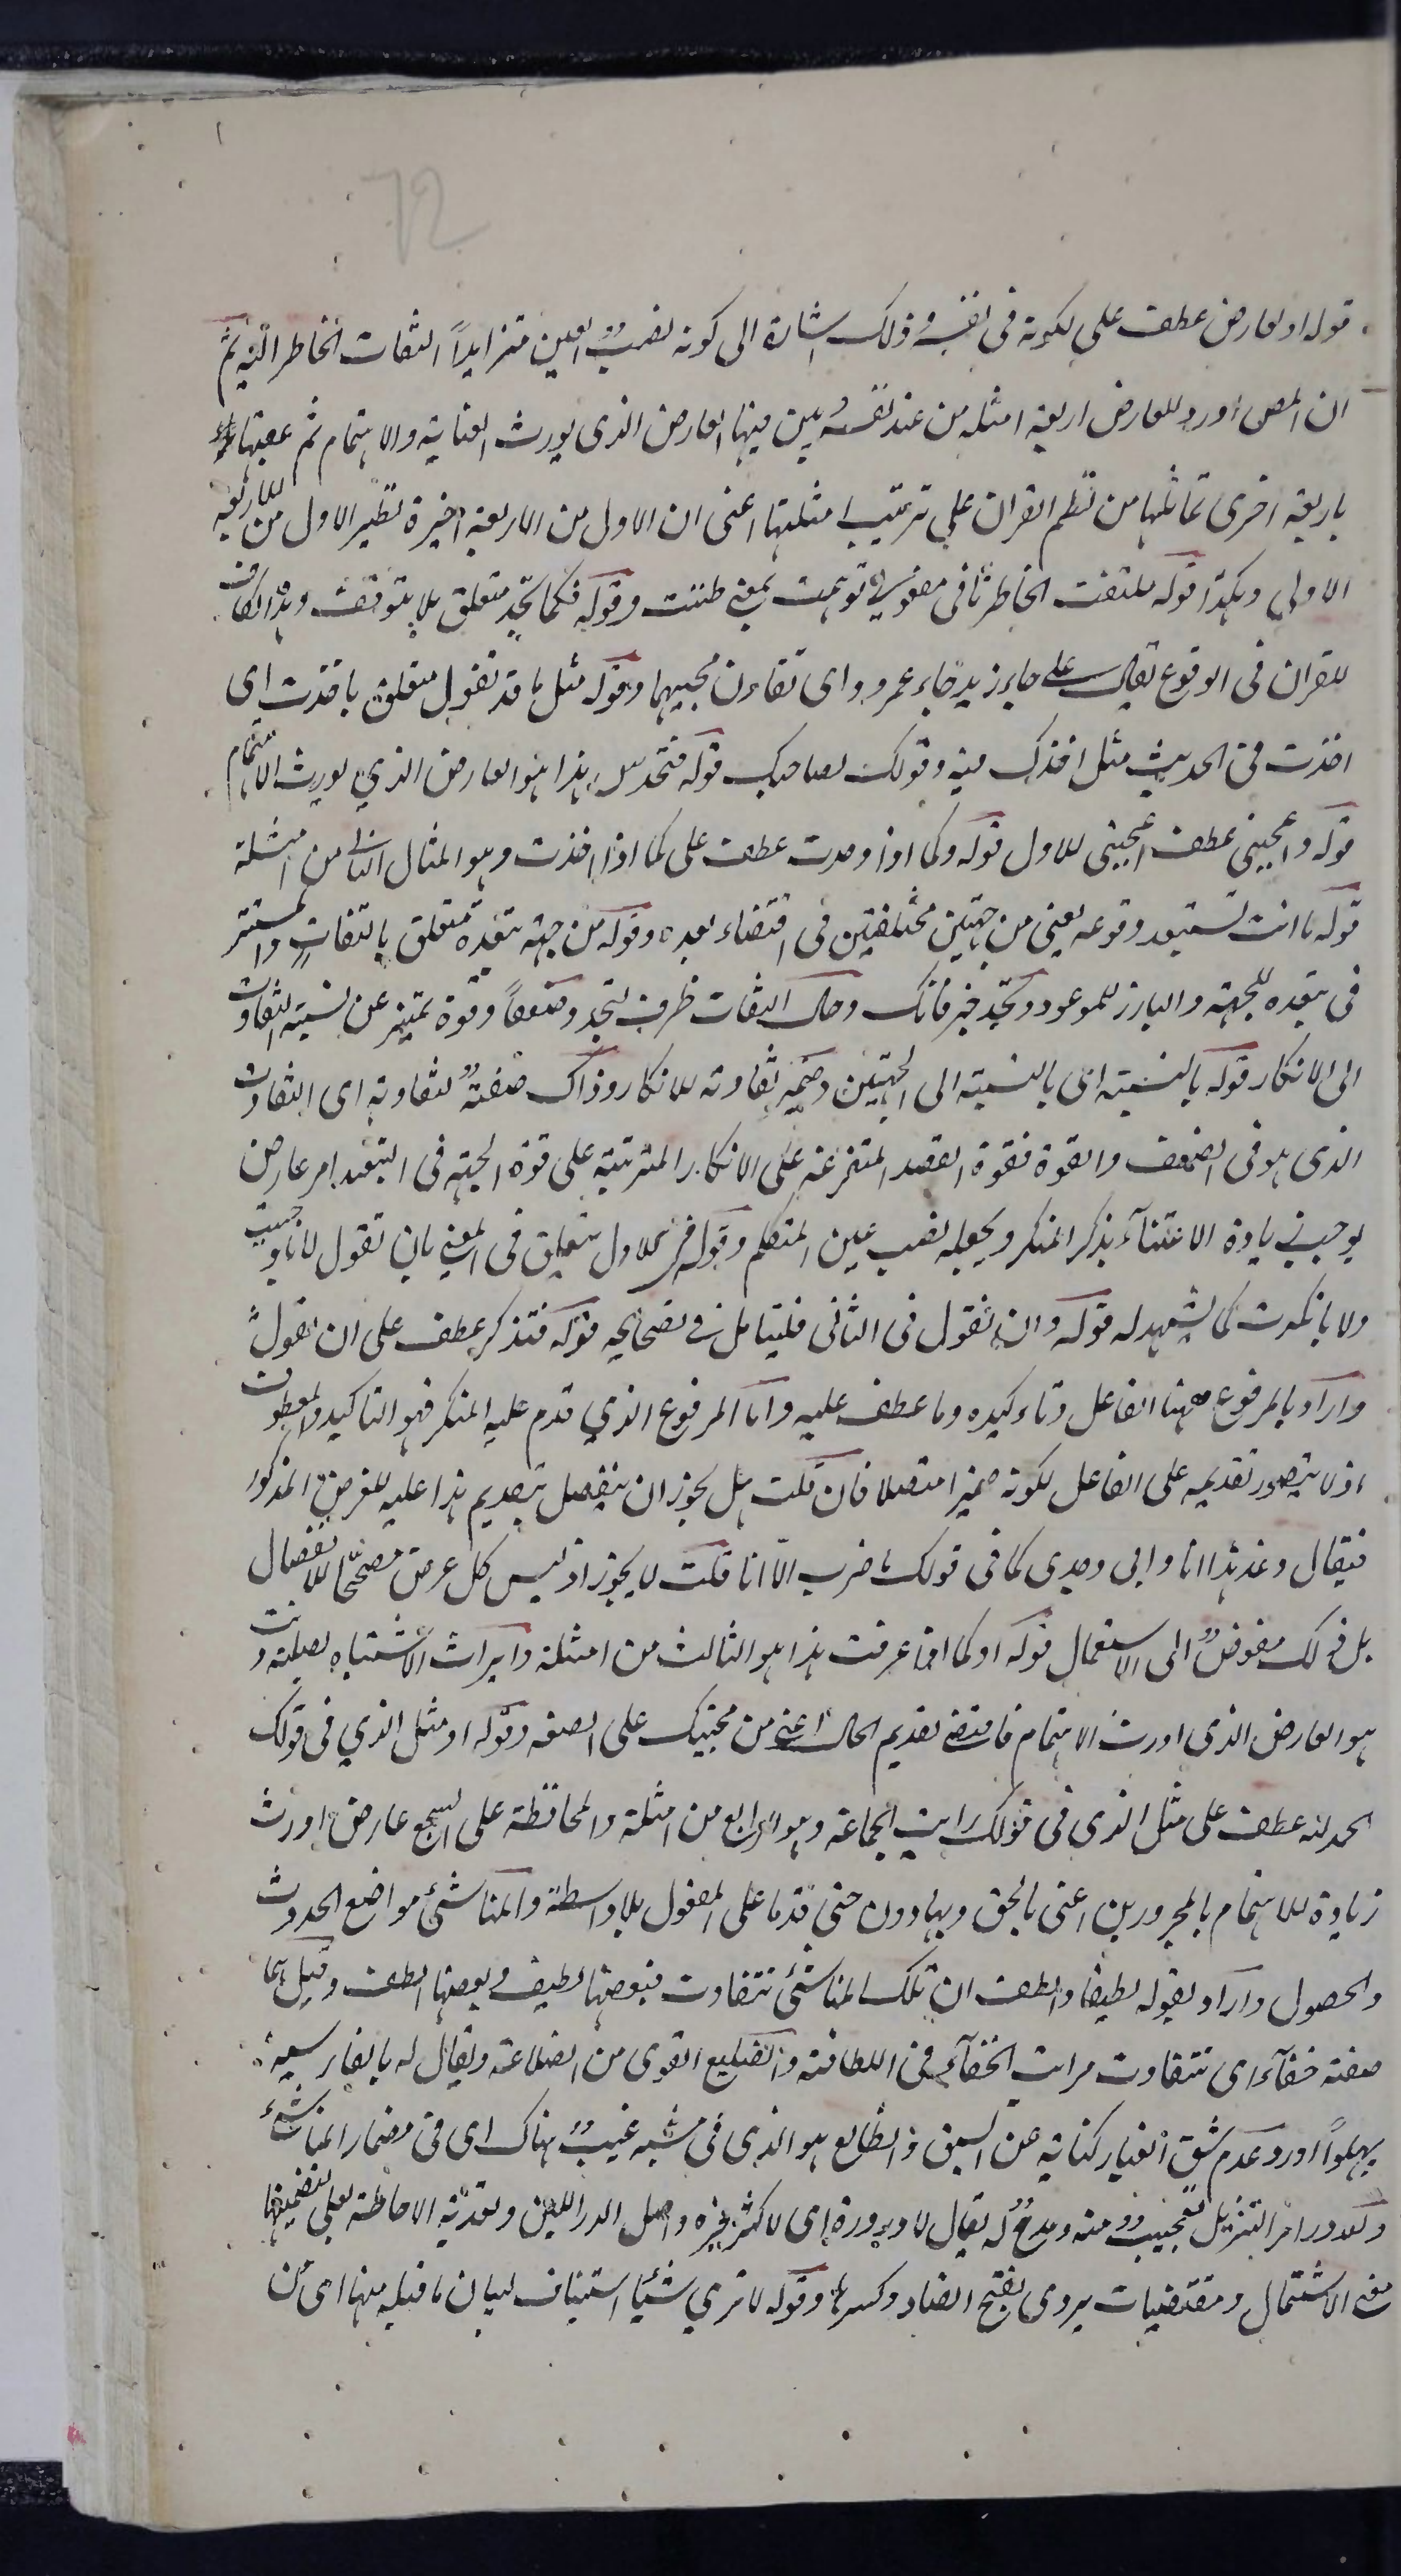 72
قوله او لعارض عطف على لكونه فى نفسه وذلك اشارة الى كونه نصبُ العين متزايداً التفات الخاطر اليه ثم
ان المص اورد للعارض اربعة امثله من عند نفسه يبين فيها العارض الذى يورث العناية والاهتمام ثم عقبها
باربعة اخرى تماثلها من نظم القران على ترتيب امثلتها اعنى ان الاول من الاربعة اخيرة نظير الاول من الاربعة
الاولى وهكذا قوله ملتفت الخاطر ثانى مفعولى توهمت بمعنى ظننت وقوله فكما تجد متعلق بلا يتوقف وهذه الكاف
للقران فى الوقوع يقال على جاء زيد جاء عمرو واى تقارن مجيهما وقوله مثل ما قد تقول متعلق باخذت اى
اخذت فى الحديث مثل اخذك فيه وقولك لصاحبك قوله فتخدس هذا هو العارض الذي يورث الاهتمام
قوله واعجبنى عطف اعجبنى للاول قوله وكما اذا وعدت عطف على كما اذا اخذت وهو المثال الثانى من امثلة
قوله ما انت تستبعد وقوعه يعنى من جهتين مختلفتين فى اقتضاء بعده وقوله من جهة تبعده متعلق بالتفات والمستتر
فى تبعده للجهة والبارز للموعود وتجد خبر فانك وحال التفات ظرف لتجد وضعفاً وقوة تمييز عن نسبة التفاوت
الى الانكار قوله بالنسبة اى بالنسبة الى الجهتين وضمير تفاوته للانكار وذاك صفةٌ لتفاوته اى التفاوت
الذى هو فى الضعف والقوة فقوة القصد المتفرعة على الانكار المترتبة على قوة الجهة فى التبعيد امر عارض
يوجب زيادة الاعتناء بذكر المنكر ويجعله نصب عين المتكلم وقوله فى الاول متعلق فى المعنى بان تقول
ولا ما نكرت كما يشهد له قوله وان تقول فى الثانى فليتامل فى نصحايحه قوله فتذكر عطف على ان تقول
واراد بالمرفوع ههنا الفاعل وتاكيده وما عطف عليه واما المرفوع الذي قدم عليه المنكر فهو التاكيد والمعطوف
اذ لا يتصور تقديمه على الفاعل لكونه ضميرا متصلا فان قلت هل يجوز ان ينفصل بتقديم هذا عليه للغرض المذكور
فيقال وعد هذا انا وابى وجدى كما فى قولك ما ضرب الا انا قلت لا يجوز اذ ليس كل عرض مصححا للانفصال
بل ذلك مفوضٌ الى الاستعمال قوله او كما اذا عرفت هذا هو الثالث من امثلة وايراث الاشتباه
هو العارض الذى اورث الاهتمام فاقتضى تقديم الحال اعنى من مجيئك على الصفه وقوله او مثل الذي فى قولك
الحمد لله عطف على مثل الذى فى قولك رايت الجماعة وهو الرابع من امثلة والمحافظة على السجع عارض اورث
زيادة للاهتمام بالمجرورين اعنى بالحق وبها دون حتى قدما على المفعول بلا واسطة والمناشئ مواضع الحدوث
والحصول واراد بقوله لطيفا والطف ان تلك المناشئ تتفاوت فبعضها لطيف وبعضها الطف وقيل هما
صفة خفاء اى تتفاوت مراتب الخفاء فى اللطافة والضليع القوى من الضلاعة ويقال له بالفارسية
پهلوا اورد عدم شق الغبار كناية عن السبق والظالع هو الذى فى مشيه عيبٌ هناك اى فى مضمار المناشئ
ولله در امر التنزيل تعجيب منه ومدحٌ له يقال لا در دره اى لا كثر خيره واصل الدر اللبن وتعدية الاحاطة بعلى لتضمينها
معنى الاشتمال ومقتضيات يروى بفتح الضاد وكسرها وقوله لا ترى شيئا استيناف لبيان ما قبله منها اى من